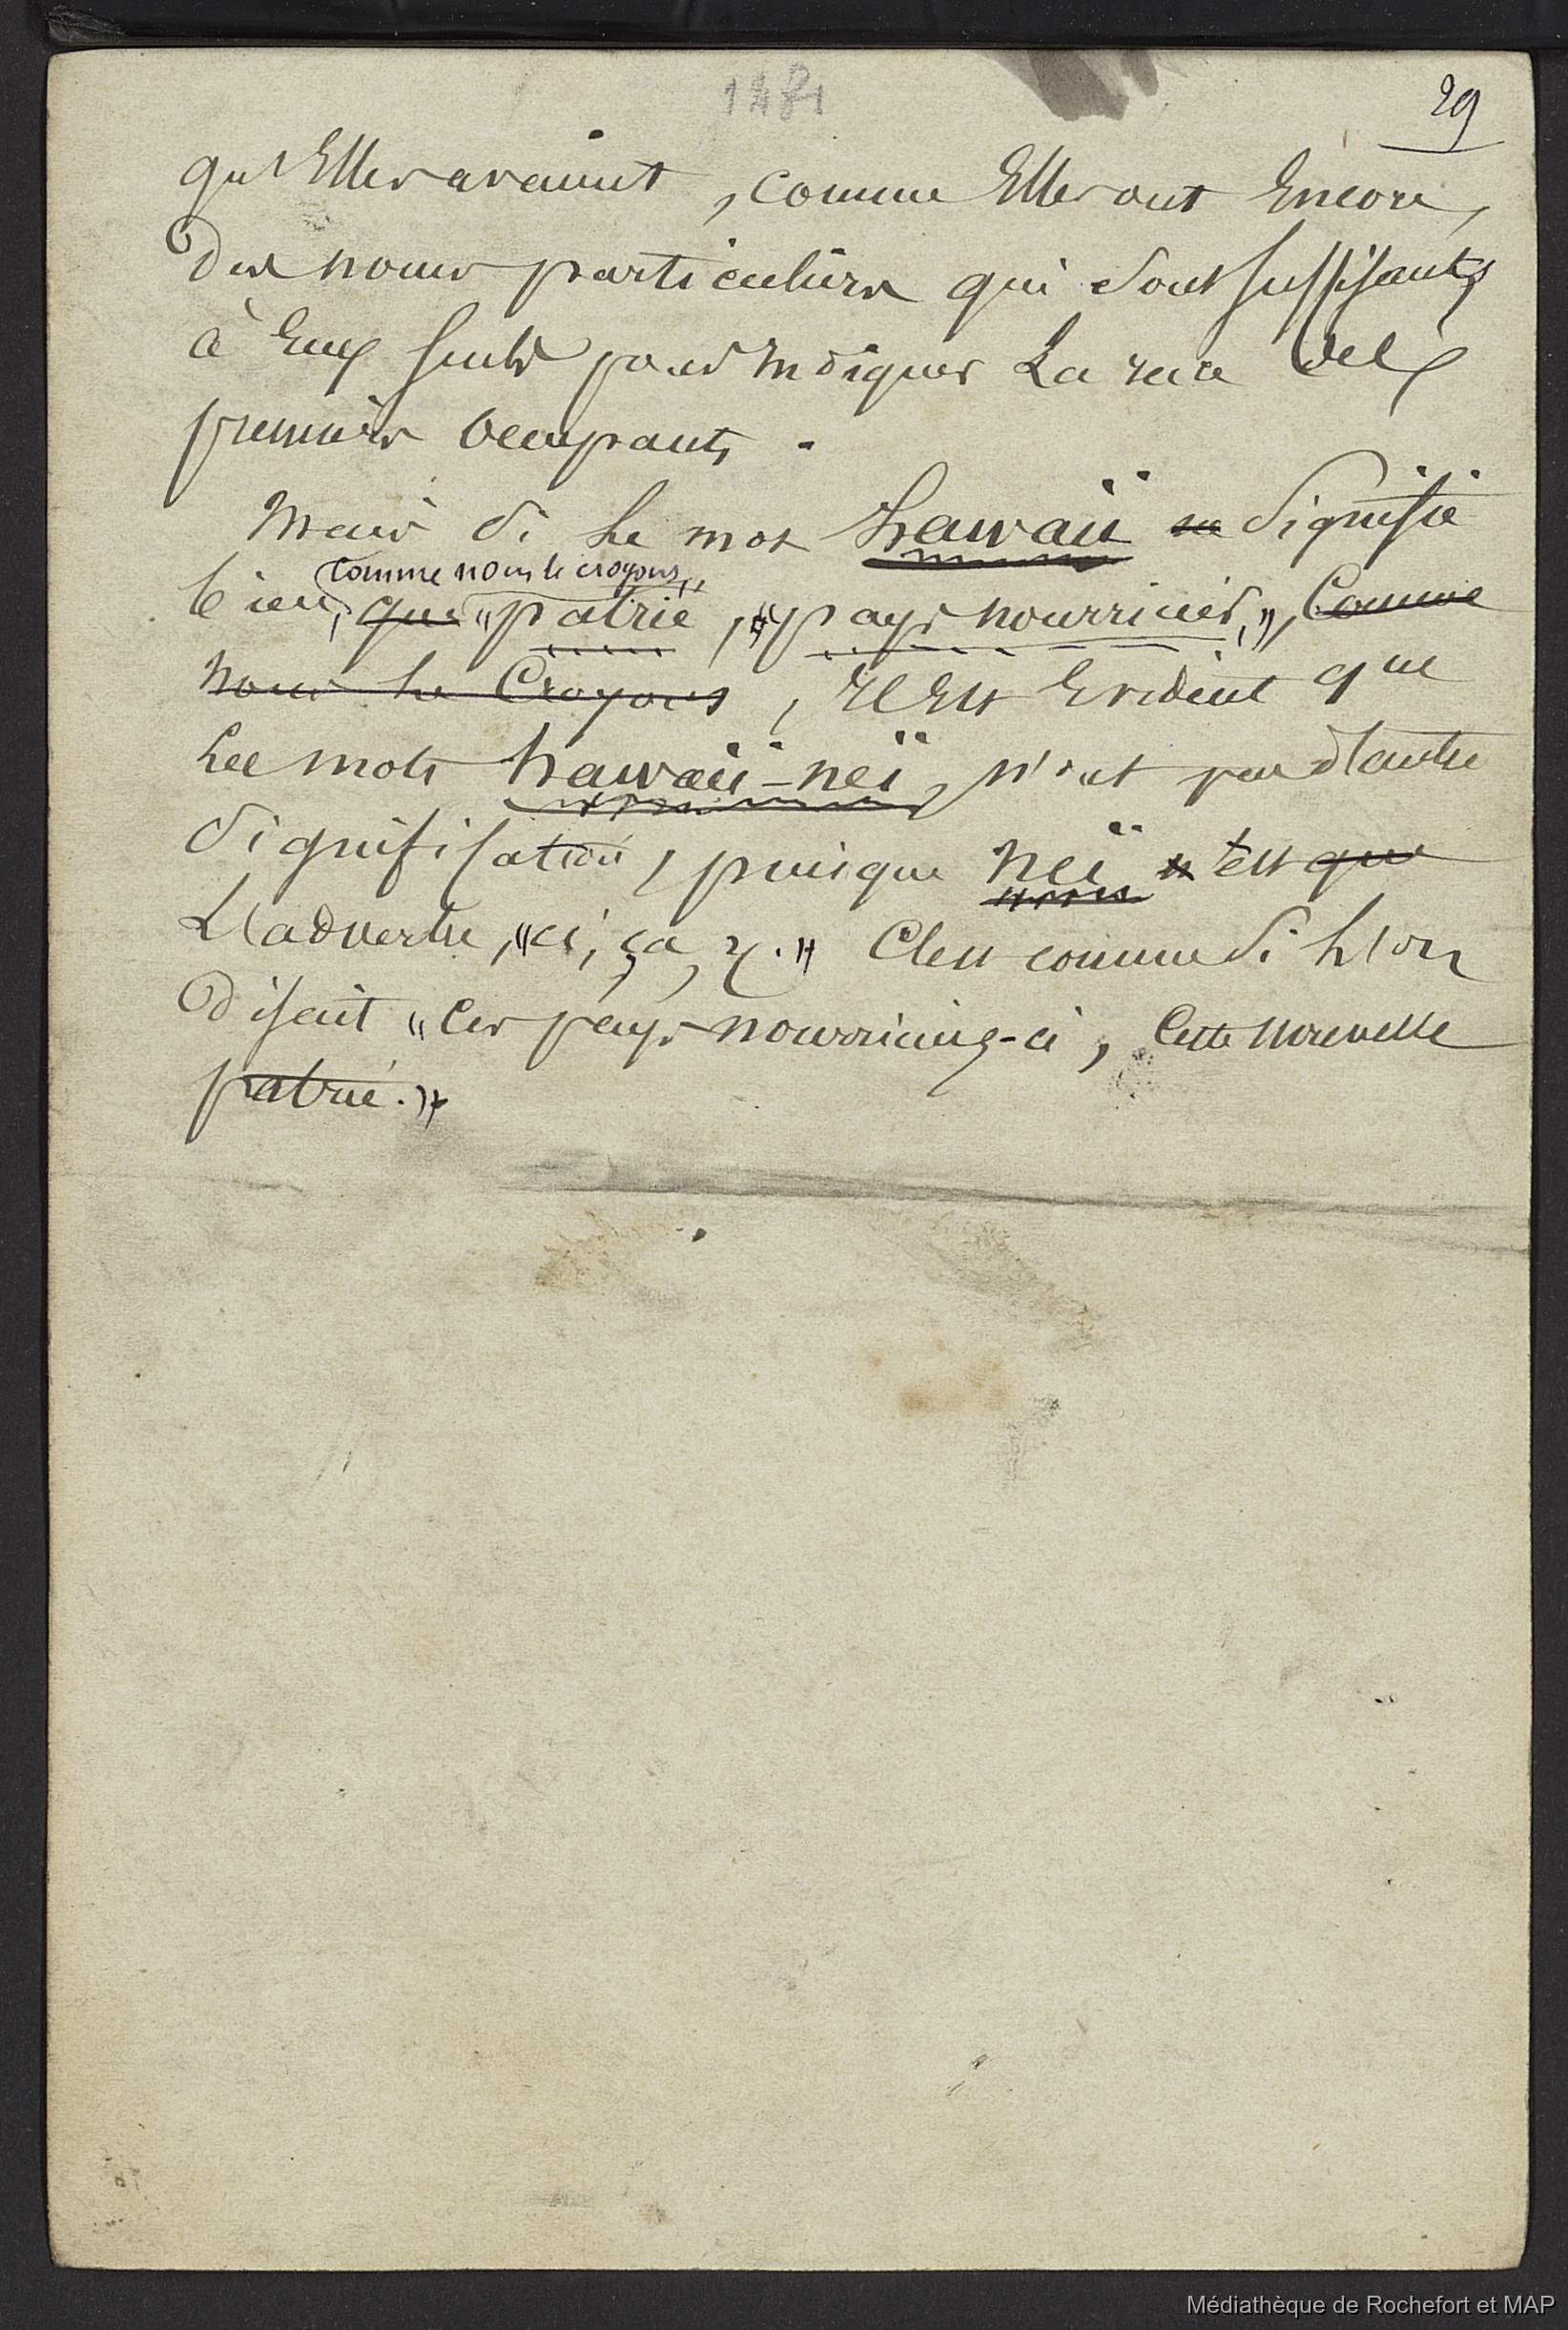 29
qu'Elles avaient, comme Elles ont Encore,
des noms particuliers qui sont suffisants
à Eux seuls pour Indiquer La race des
premiers occupants.
Mais si Le mot hawaïi ne signifie
comme nous le croyons,
bien, que "patrie, "pays nourricier," Comme
nous Le Croyons, Il Est Evident que
Les mots hawaïi-neï, n'ont pas d'autre
signification, puisque neï n'est que
L'adverbe, "ci, ça, &." C'est comme si L'on
disait "Ces pays nourriciers-ci, Cette nouvelle
patrie."
Médiathèque de Rochefort et MAP